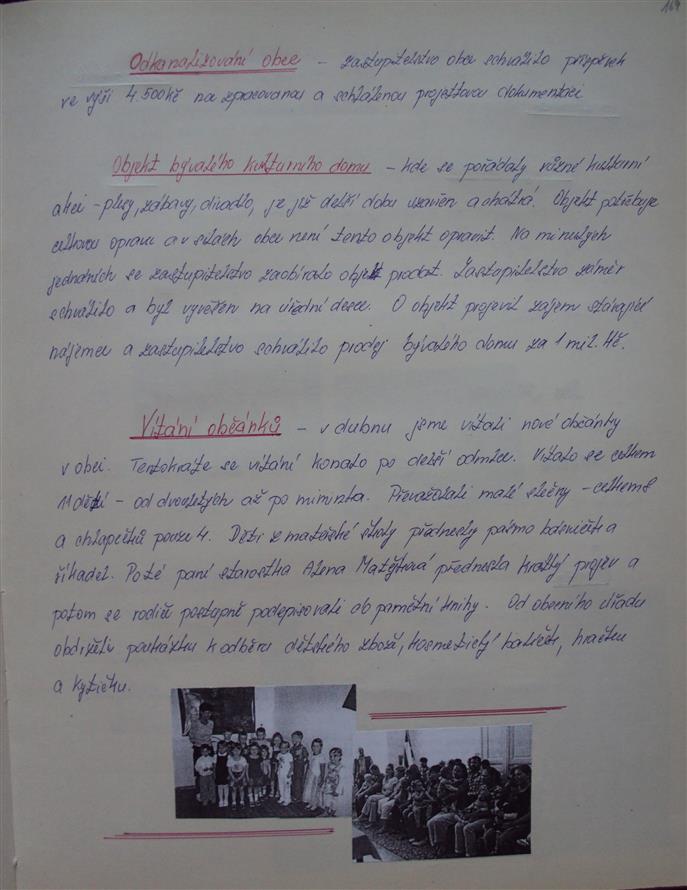 169
Odkanalizování obce – zastupitelstvo obce schválilo příspěvek
ve výši 4.500 Kč na zpracovanou a schválenou projektovou dokumentaci
Objekt bývalého kulturního domu – kde se pořádaly různé kulturní
akce – plesy, zábavy, divadlo, je již delší dobu uzavřen a chátrá. Objekt potřebuje
celkovou opravu a v silách obce není tento objekt opravit. Na minulých
jednáních se zastupitelstvo zaobíralo objekt prodat. Zastupitelstvo záměr
schválilo a byl vyvěšen na úřední desce. O objekt projevil zájem stávající
nájemce a zastupitelstvo schválilo prodej bývalého domu za 1 mil. Kč.
Vítání občánků – v dubnu jsme vítali nové občánky
v obci. Tentokráte se vítání konalo po delší odmlce. Vítalo se celkem
11 dětí – od dvouletých až po miminka. Převažovali malé slečny – celkem 8
a chlapečků pouze 4. Děti z mateřské školy přednesly pásmo básniček a
říkadel. Poté paní starostka Alena přednesla krátký projev a
potom se rodiče postupně podepisovali do pamětní knihy. Od obecního úřadu
obdrželi poukázku k odběru dětského zboží, kosmetický balíček, hračku
a kytičku.